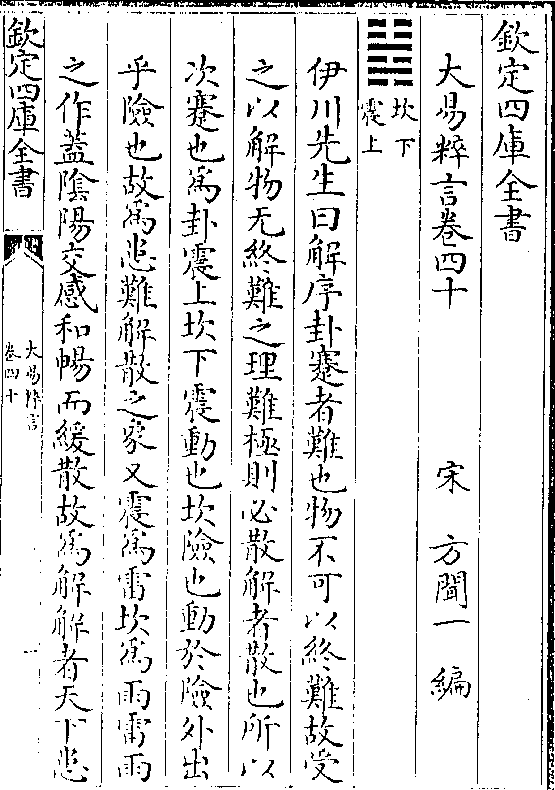 欽定四庫全書
大易粹言卷四十
宋 方聞一 編
坎下
震上
伊川先生曰解序卦蹇者難也物不可以終難故受
之以解物无終難之理難極則必散解者散也所以
次蹇也為卦震上坎下震動也坎險也動於險外出
乎險也故為患難解散之象又震為雷坎為雨雷雨
之作蓋陰陽交感和暢而緩散故為解解者天下患
欽定四庫全書
大易粹言
卷四十
一